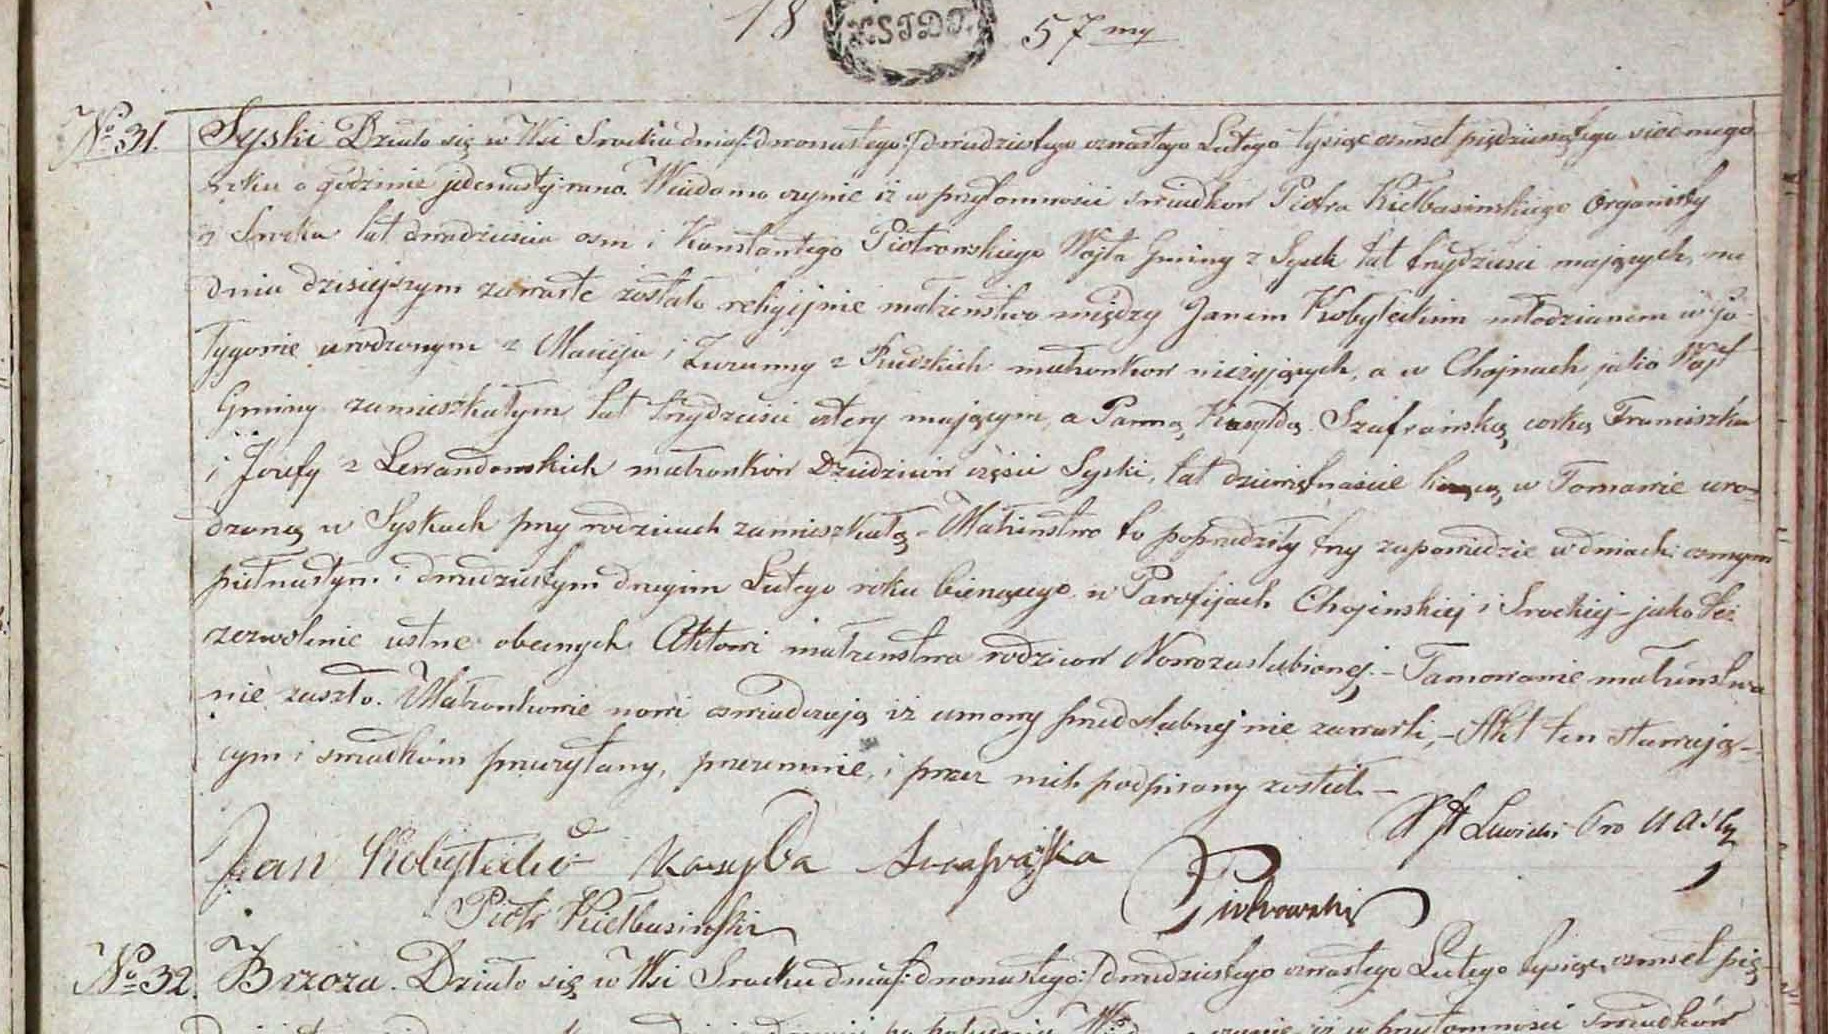 18 57my
KSTDT.
No 31. Syski Działo się w Wsi Srocku dnia /: dwonastego :/ dwudziestego czwartego Lutego tysiąc osmset pięćdziesiątego siodmego
roku o godzinie jedenastej rano. Wiadomo czynie iż w przytomności swiadków Piotra Kiełbasinskiego Organisty
z Srocka lat dwadziescia osm i Konstantego Piotrowskiego Wojta Gminy z Sysek lat trzydziesci mających, na
dniu dzisiejszym zawarte zostało religijnie małzeństwo między Janem Kobyłeckim młodzianem w
urodzonym z Macieja i Zuzanny z Rudzkich małzonkow nieżyjących, a w Chojnach jako Wojt
Gminy zamieszkałym lat trzydziesci cztery mającym, a Panną Kasyldą Szafrańską corką Franciszka
i Jozefy z Lewandowskich małzonków Dziedziców części Syski, lat dziewiętnaście liczącą w Tomawie uro-
dzoną w Syskach przy rodzicach zamieszkałą - Małzeństwo to poprzedziły trzy zapowiedzie w dniach: osmym
piętnastym i dwudziestym drugim Lutego roku bieżącego w Parafijach Chojeńskiej i Srockiej - jako też
zezwolenie ustne obecnych Aktowi małzenstwa rodzicow Nowozaslubionej. - Tamowanie małzenstwa
nie zaszło. Małzonkowie nowi oswiadczają iż umowy przedslubnej nie zawarli, - Akt ten stawają-
cym i swiadkóm przeczytany, przezemnie, i przez nich podpisany został. -
Jan Kobyłecki Kasylda Szafrańska
Piotr Kiełbasinski Piotrowski
No 32. Brzoza. Działo się w Wsi Srocku dnia /: dwonastego :/ dwudziestego czwartego Lutego tysiąc osmset pię-
po południu czynie iż w przytomności Swiadków